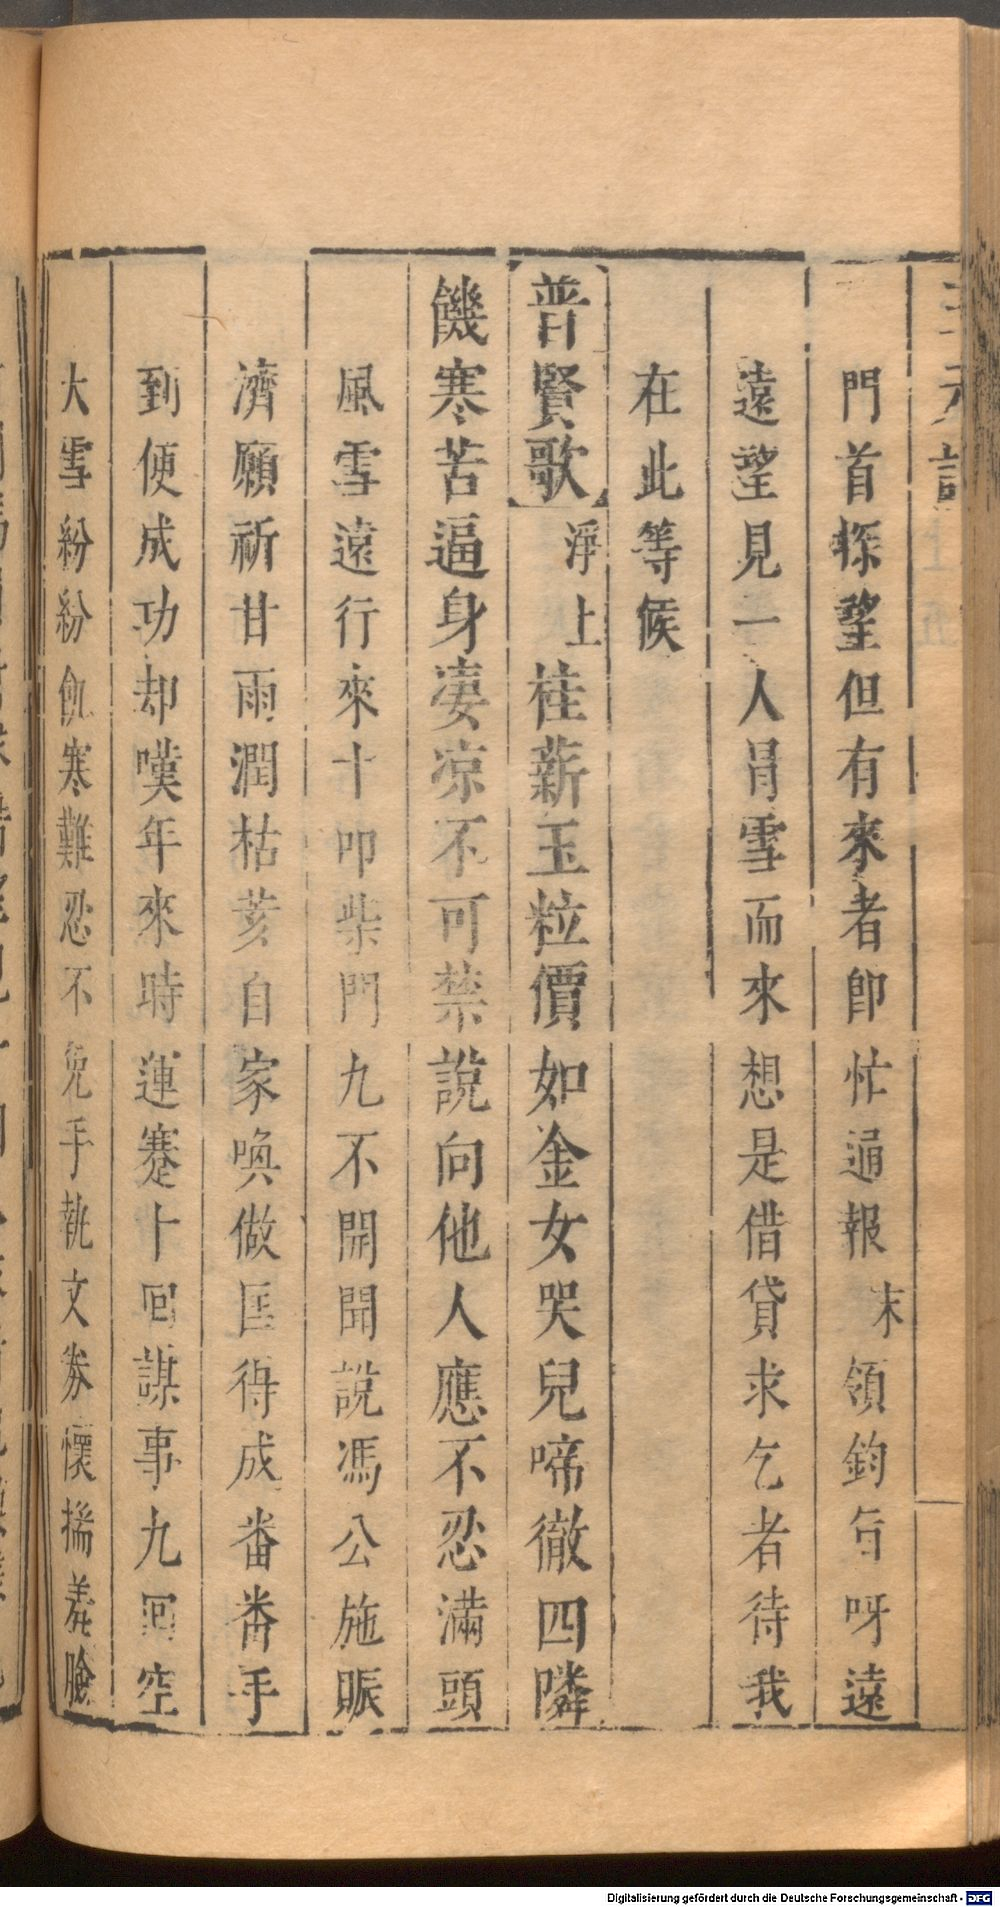 三元記
門首探望但有來者卽忙通報末領鈞旨呀遠
遠望見一人冐雪而來想是借貸求乞者待我
在此等候
普賢歌淨上桂薪玉粒價如金女哭兒啼徹四隣
饑寒苦逼身淒凉不可禁說向他人應不忍滿頭
風雪遠行來十叩柴門九不開聞說馮公施賑
濟願祈甘雨潤枯荄自家喚做匡得成番番手
到便成功却嘆年來時運蹇十回謀事九回空
大雪紛紛飢寒難忍不免手執文券懷揣羞臉
Digitalisierung gefördert durch die Deutsche Forschungsgemeinschaft - DFG